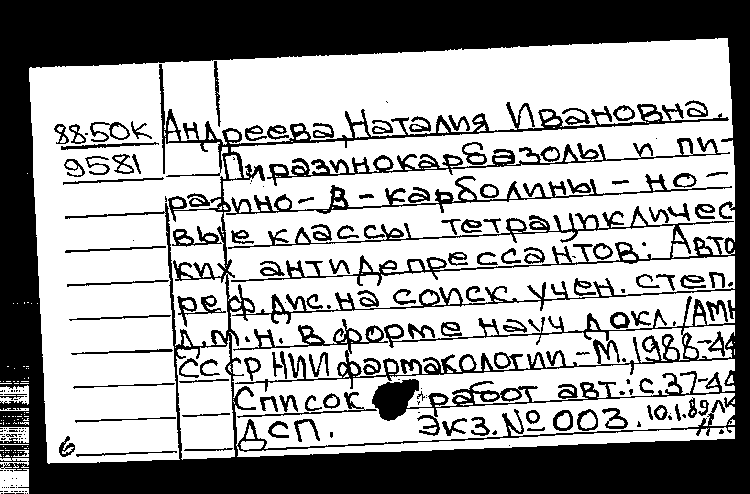 88-50К Андреева, Наталия Ивановна.
9581 Пиразинокарбазолы и пи-
разино-β-карболины - но-
вые классы тетрацикличес
ких антидепрессантов: Авто
реф.дис.на соиск. учен. степ.
д.м.н. в форме науч докл./АМН
СССР, НИИ фармакологии.-М., 1988-44
Список работ авт.: с.37-44
ДСП. Экз.№ 003. 10.1.89
6